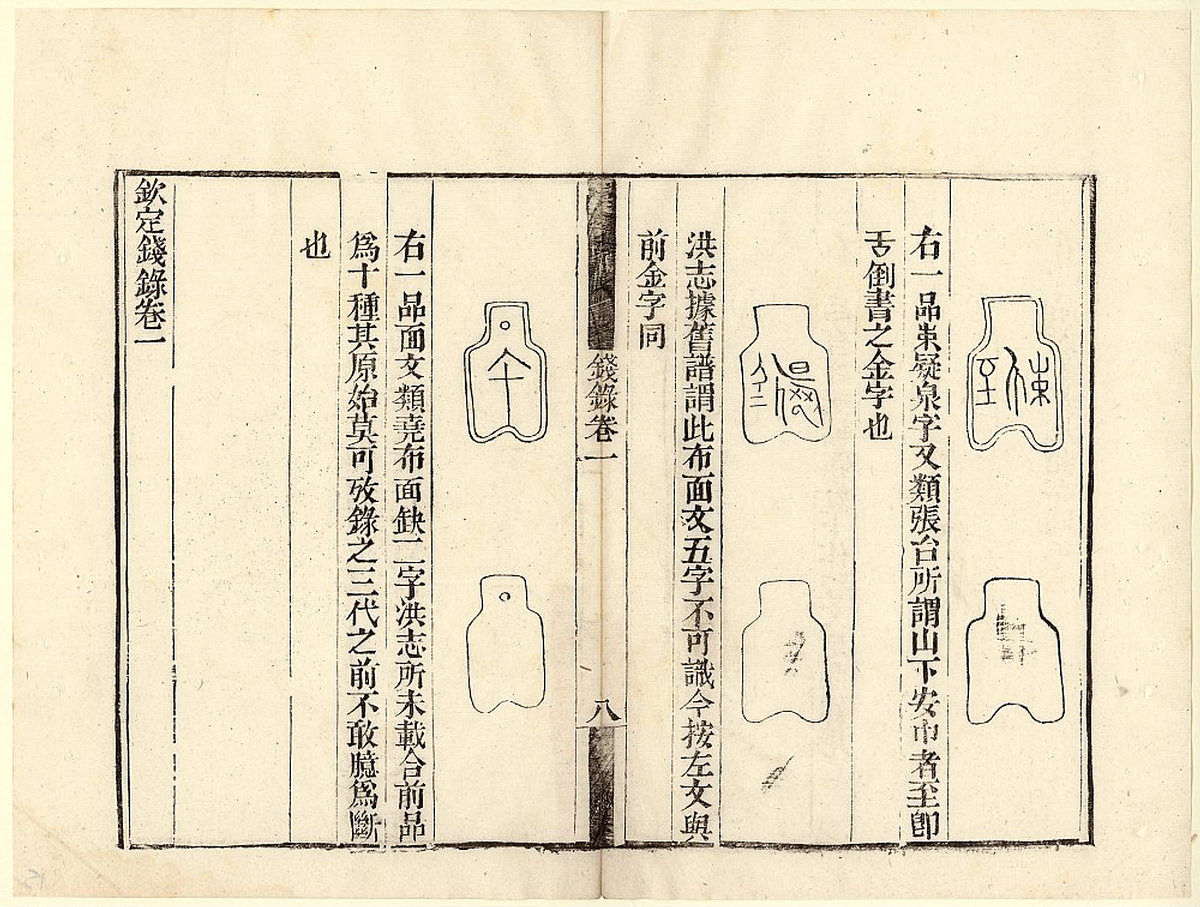 右一品朿疑泉字又類張台所謂山下安巾者至卽
舌倒書之金字也
洪志據舊譜謂此布面文五字不可識今按左文與
前金字同
錢錄卷一
八
右一品面文類堯布面缺二字洪志所未載合前品
爲十種其原始莫可攷錄之三代之前不敢臆爲斷
也
欽定錢錄卷一